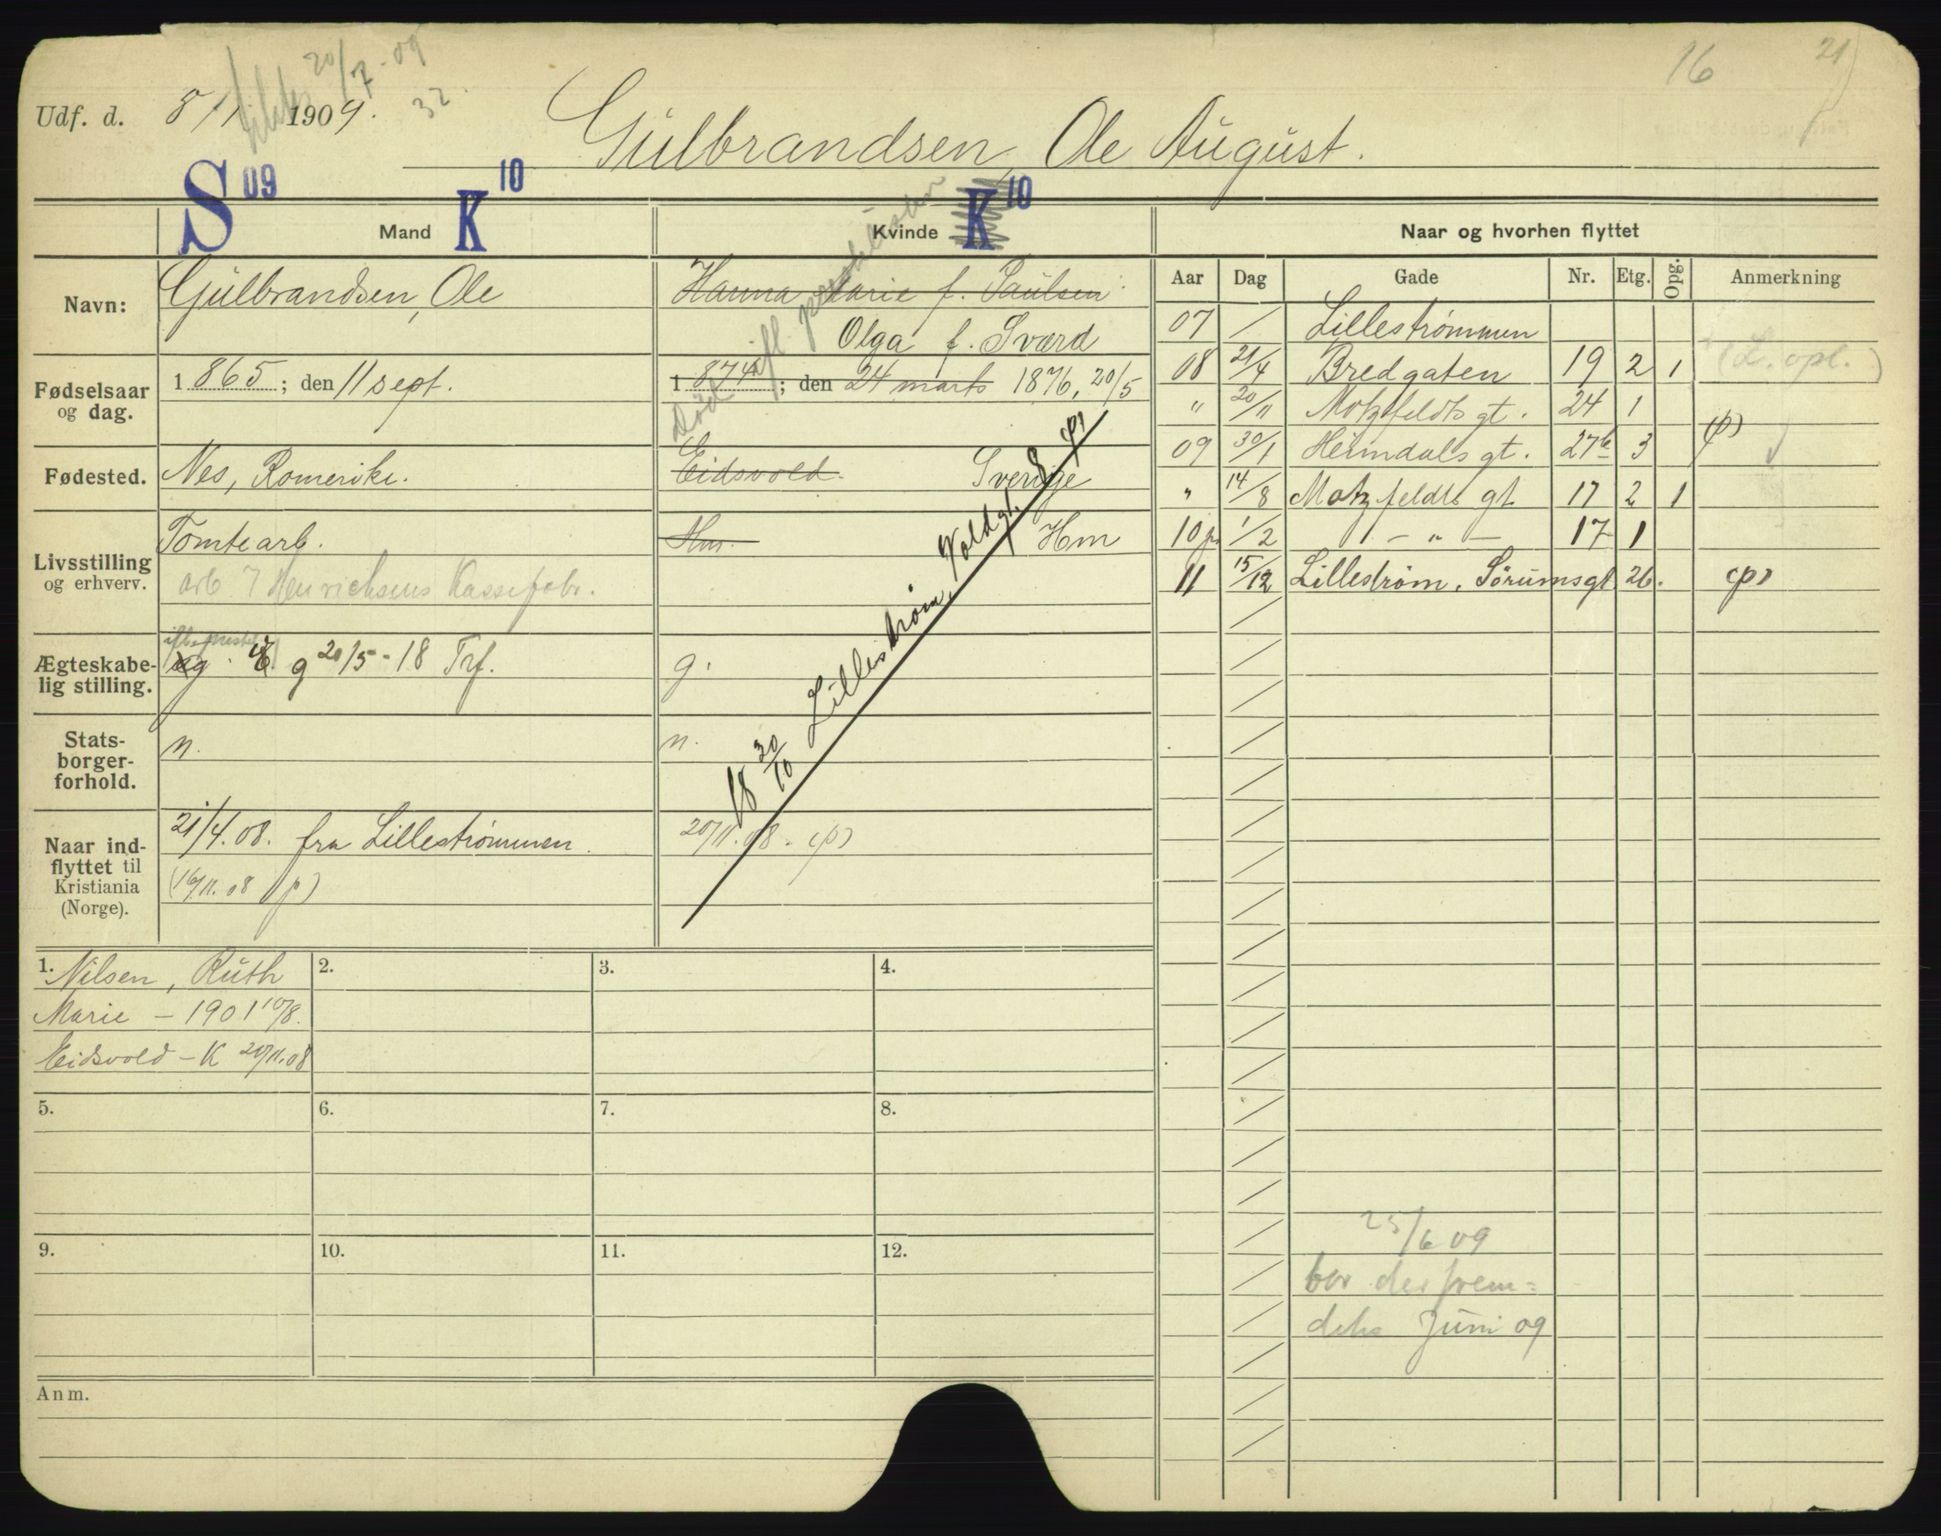 16 21
20/7-09
32.
Udf. d. 8/1 1909.
Gulbrandsen, Ole August.
S 09 Mand K 10 Kvinde K 10 Naar og hvorhen flyttet
Aar Dag Gade Nr. Etg. Opg. Anmerkning
Navn: Gulbrandsen, Ole Hanna Marie f. Paulsen
Olga f. Sværd
Fødselsaar og dag. 1865; den 11 sept. 1874; den 24 marts 1876, 20/5
Død ifl.
Fødested. Nes, Romerike. Eidsvold. Sverige
Livsstilling og erhverv. Tomtearb. Hm. Hm
arb. Henrichsens Kassefabr.
Ægteskabelig stilling. g. g 20/5-18 Trf. g.
Statsborgerforhold. n. n.
Naar indflyttet til Kristiania (Norge). 21/4.08. fra Lillestrømmen. 20/11.08. (p)
(16/11.08 p)
18 30/10 Lillestrøm, Voldgt. 8 (p)
07 / Lillestrømmen
08 21/4 Bredgaten 19 2 1 (L. opl.)
" 20/11 Motzfeldts gt. 24 1
09 30/1 Heimdals gt. 27b 3 (p)
" 14/8 Motzfeldts gt 17 2 1
10 p. 1/2 1 - " - 17 1
11 15/12 Lillestrøm, Sørumsgt. 26. (p)
25/6 09
bor der frem-
deles Juni 09
1. Nilsen, Ruth
Marie - 1901 10/8.
Eidsvold - K 20/11.08
2.
3.
4.
5.
6.
7.
8.
9.
10.
11.
12.
Anm.